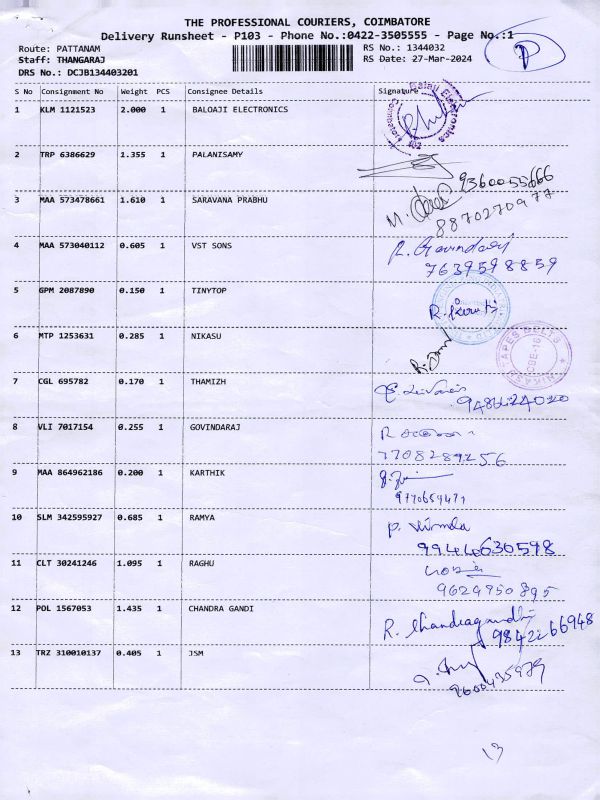 THE PROFESSIONAL COURIERS, COIMBATORE
Delivery Runsheet - P103 - Phone No.:0422-3505555 - Page No.:1
Route: PATTANAM RS No.: 1344032
Staff: THANGARAJ RS Date: 27-Mar-2024
DRS No.: DCJB134403201
S No Consignment No Weight PCS Consignee Details Signature
1 KLM 1121523 2.000 1 BALOAJI ELECTRONICS
2 TRP 6386629 1.355 1 PALANISAMY
9360055666
3 MAA 573478661 1.610 1 SARAVANA PRABHU
8870270977
4 MAA 573040112 0.605 1 VST SONS R. Govindaraj
7639598859
5 GPM 2087890 0.150 1 TINYTOP
6 MTP 1253631 0.285 1 NIKASU
NIKASU TAPES BELTS
7 CGL 695782 0.170 1 THAMIZH
8 VLI 7017154 0.255 1 GOVINDARAJ
7708289256
9 MAA 864962186 0.200 1 KARTHIK
9770659471
10 SLM 342595927 0.685 1 RAMYA P. Nirmala
99440630598
11 CLT 30241246 1.095 1 RAGHU
9629950895
12 POL 1567053 1.435 1 CHANDRA GANDI R. Chandragandhi
9842266948
13 TRZ 310010137 0.405 1 JSM
9600435979
13